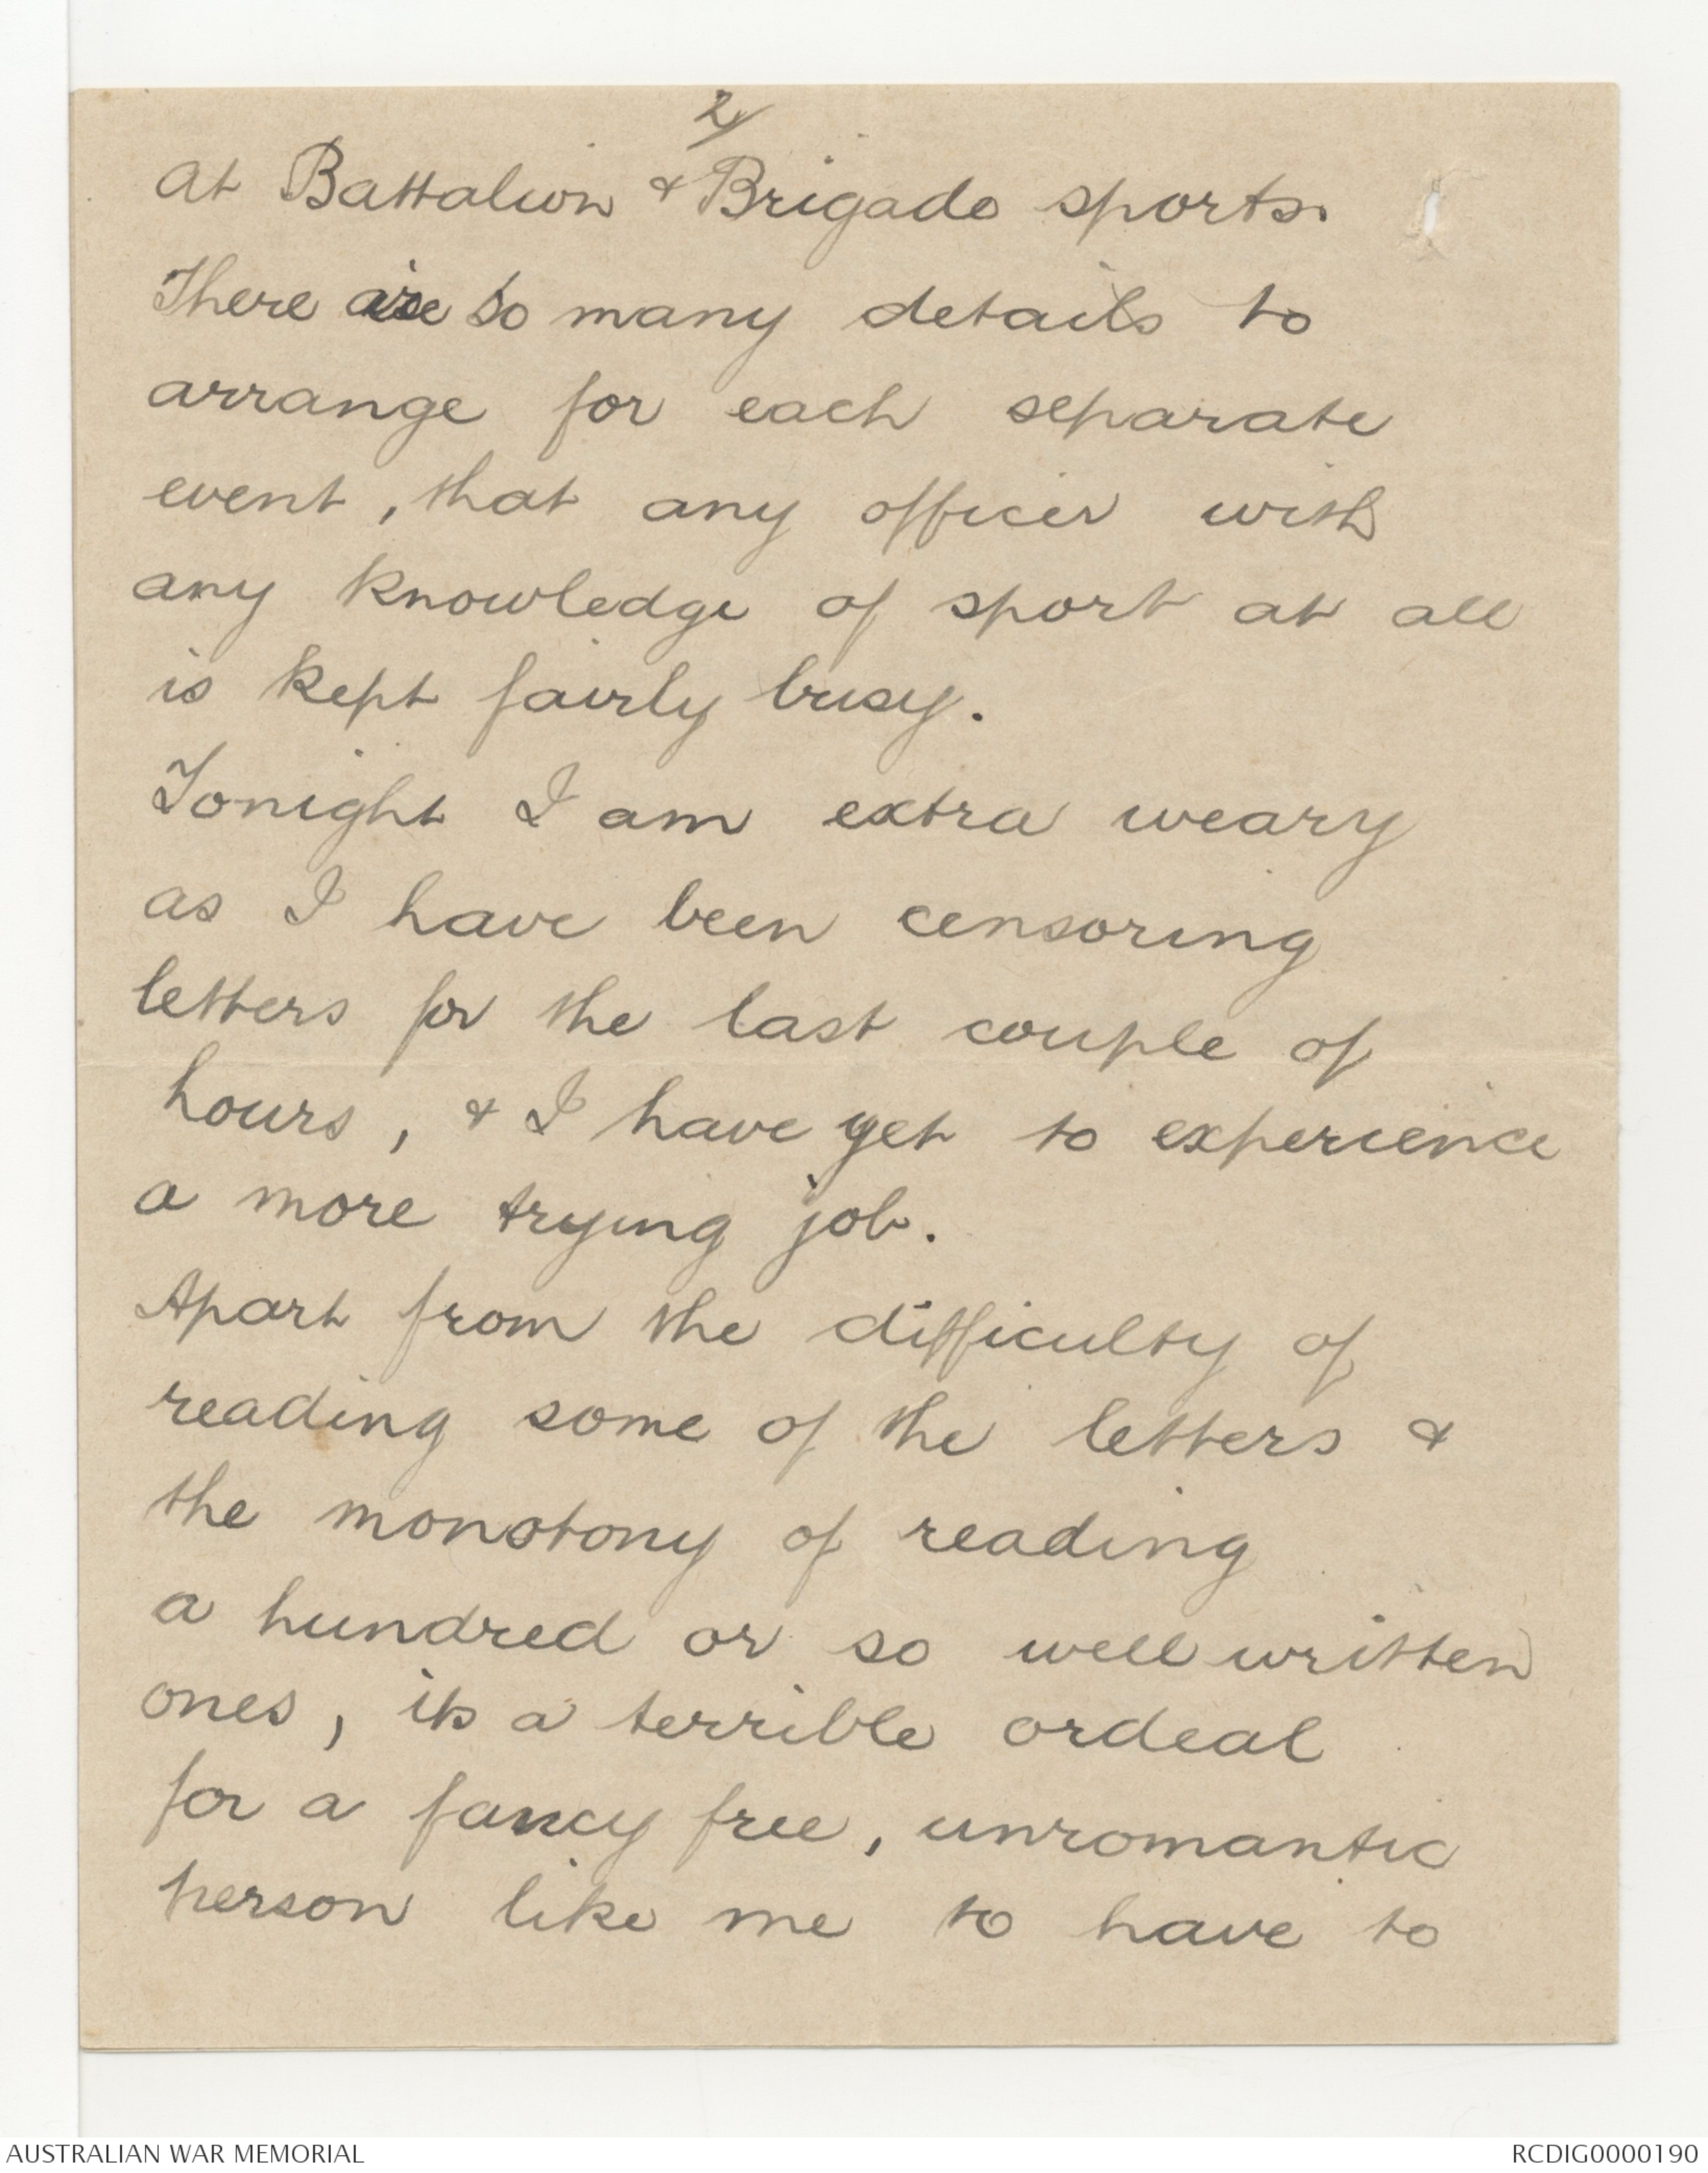 2/
at Battalion & Brigade sports.
There are so many details to
arrange for each separate
event, that any officer with
any knowledge of sport at all
is kept fairly busy.
Tonight I am extra weary
as I have been censoring
letters for the last couple of
hours, & I have yet to experience
a more trying job.
Apart from the difficulty of
reading some of the letters &
the monotony of reading
a hundred or so well written
ones, its a terrible ordeal
for a fancy free, unromantic
person like me to have to
AUSTRALIAN WAR MEMORIAL
RCDIG0000190